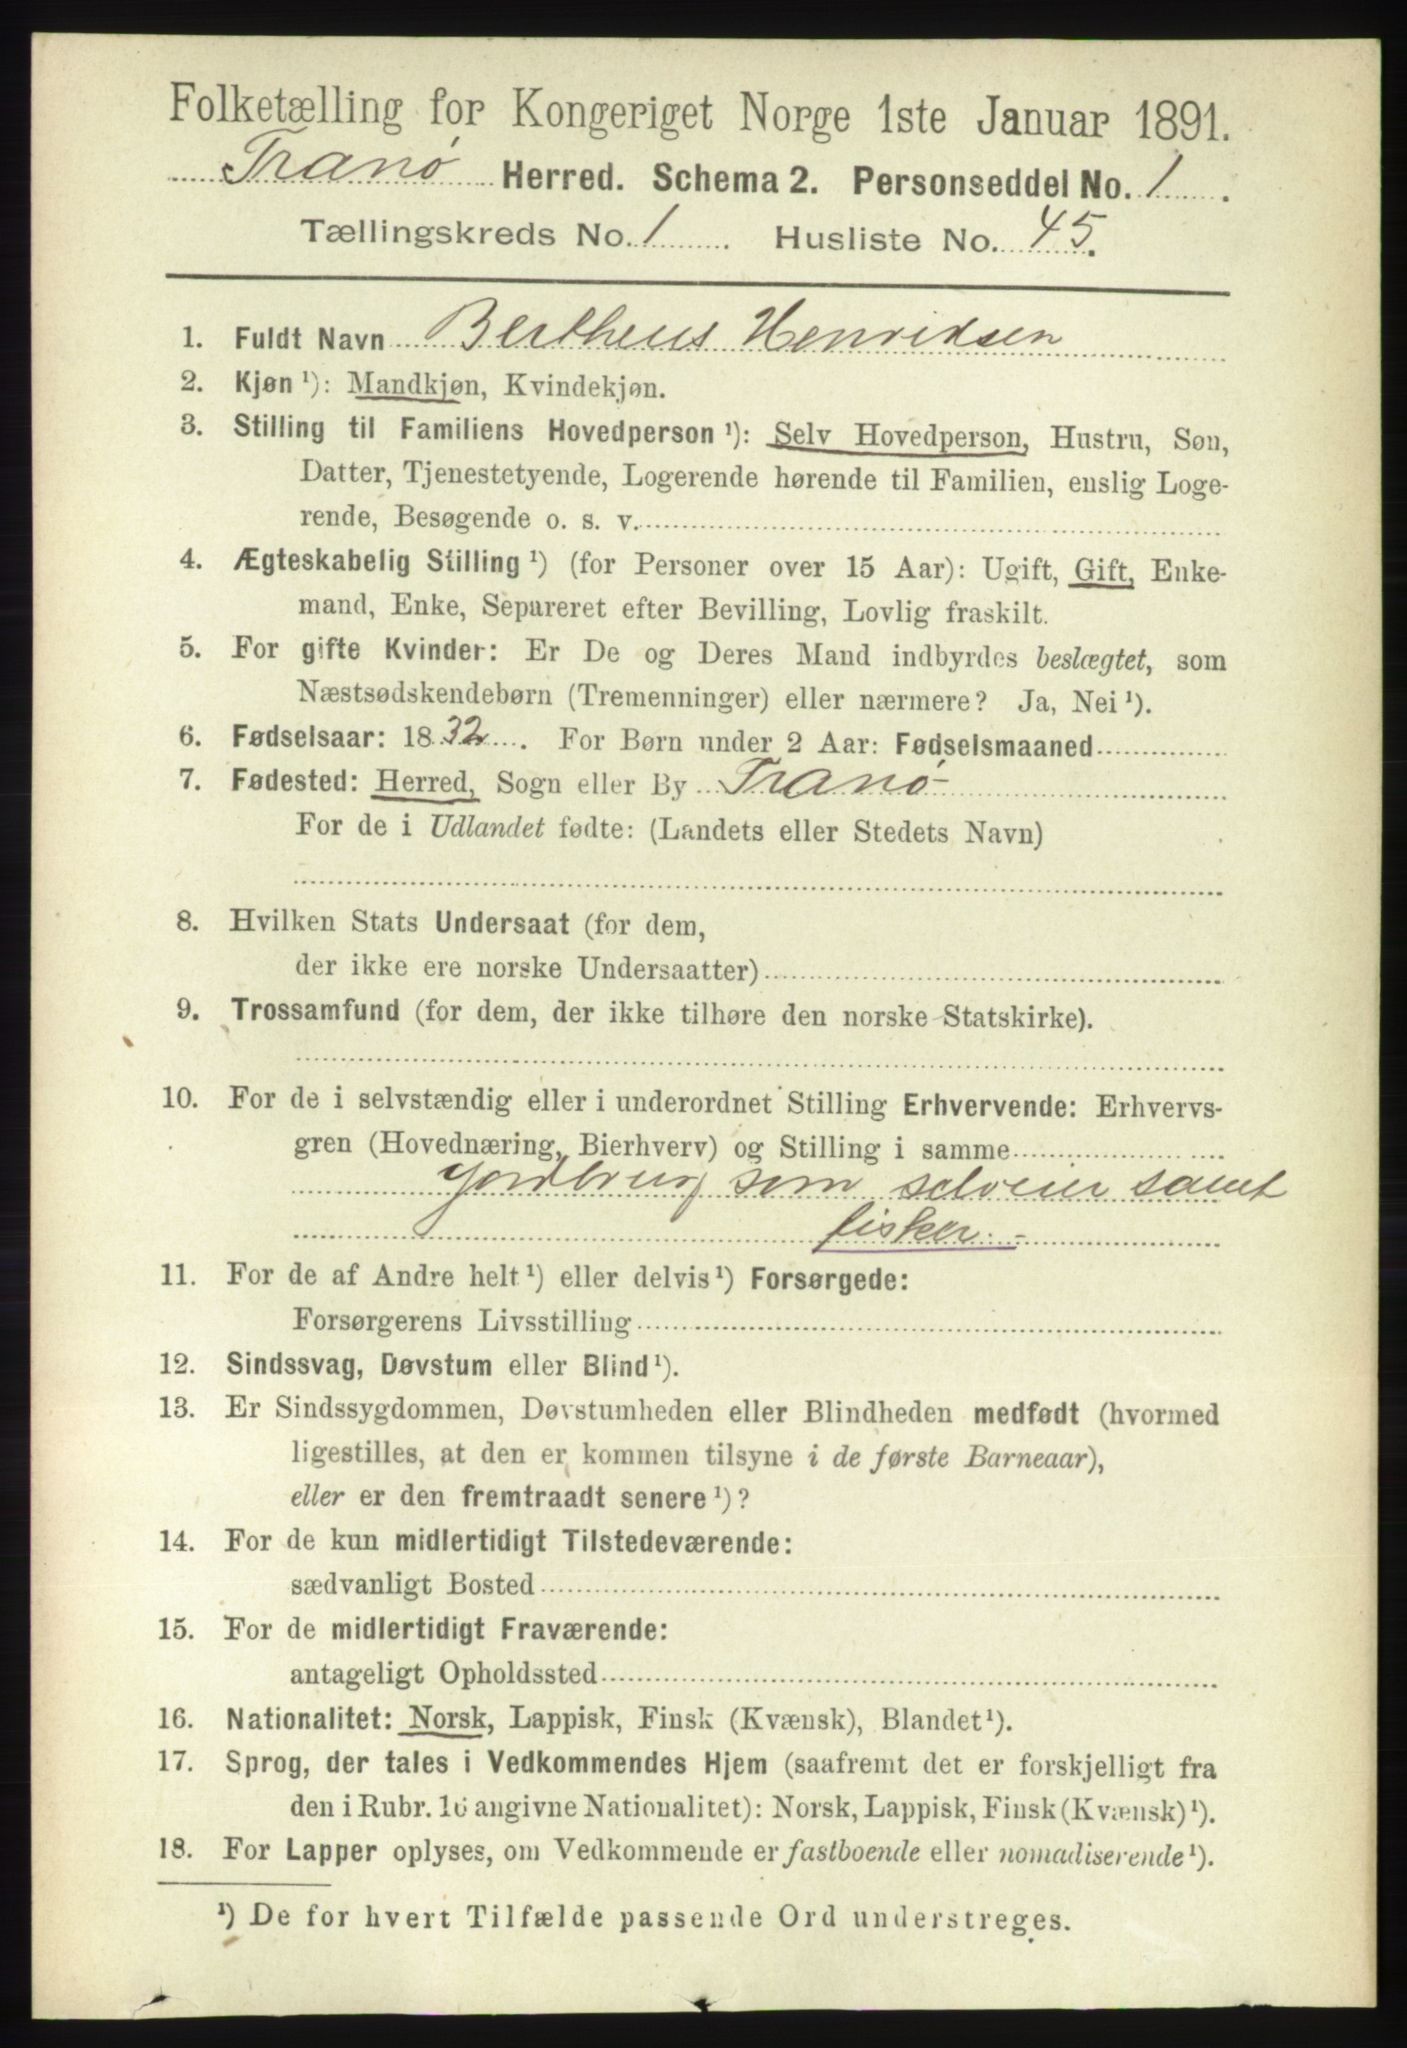 Folketælling for Kongeriget Norge 1ste Januar 1891.
Tranø Herred. Schema 2. Personseddel No. 1.
Tællingskreds No. 1. Husliste No. 45.
1. Fuldt Navn Bertheus Henriksen
2. Kjøn ¹): Mandkjøn, Kvindekjøn.
3. Stilling til Familiens Hovedperson ¹): Selv Hovedperson, Hustru, Søn,
Datter, Tjenestetyende, Logerende hørende til Familien, enslig Loge-
rende, Besøgende o. s. v.
4. Ægteskabelig Stilling ¹) (for Personer over 15 Aar): Ugift, Gift, Enke-
mand, Enke, Separeret efter Bevilling, Lovlig fraskilt.
5. For gifte Kvinder: Er De og Deres Mand indbyrdes beslægtet, som
Næstsødskendebørn (Tremenninger) eller nærmere? Ja, Nei ¹).
6. Fødselsaar: 1832. For Børn under 2 Aar: Fødselsmaaned
7. Fødested: Herred, Sogn eller By Tranø
For de i Udlandet fødte: (Landets eller Stedets Navn)
8. Hvilken Stats Undersaat (for dem,
der ikke ere norske Undersaatter)
9. Trossamfund (for dem, der ikke tilhøre den norske Statskirke).
10. For de i selvstændig eller i underordnet Stilling Erhvervende: Erhvervs-
gren (Hovednæring, Bierhverv) og Stilling i samme
Jordbrug som selveier samt
fisker. -
11. For de af Andre helt ¹) eller delvis ¹) Forsørgede:
Forsørgerens Livsstilling
12. Sindssvag, Døvstum eller Blind ¹).
13. Er Sindssygdommen, Døvstumheden eller Blindheden medfødt (hvormed
ligestilles, at den er kommen tilsyne i de første Barneaar),
eller er den fremtraadt senere ¹)?
14. For de kun midlertidigt Tilstedeværende:
sædvanligt Bosted
15. For de midlertidigt Fraværende:
antageligt Opholdssted
16. Nationalitet: Norsk, Lappisk, Finsk (Kvænsk), Blandet ¹).
17. Sprog, der tales i Vedkommendes Hjem (saafremt det er forskjelligt fra
den i Rubr. 16 angivne Nationalitet): Norsk, Lappisk, Finsk (Kvænsk) ¹).
18. For Lapper oplyses, om Vedkommende er fastboende eller nomadiserende ¹).
¹) De for hvert Tilfælde passende Ord understreges.